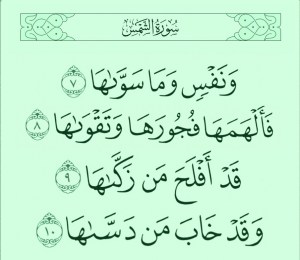 سُورَةُ الشَّمْسِ
وَنَفْسٍ وَمَا سَوَّىٰهَا ٧
فَأَلْهَمَهَا فُجُورَهَا وَتَقْوَىٰهَا ٨
قَدْ أَفْلَحَ مَن زَكَّىٰهَا ٩
وَقَدْ خَابَ مَن دَسَّىٰهَا ١٠